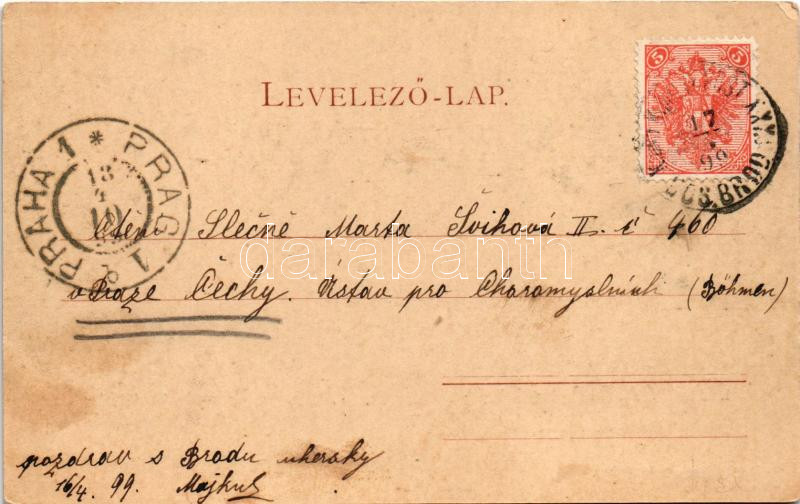 5
LEVELEZŐ-LAP.
17
99
BOS. BROD
PRAHA 1 * PRAG 1
18
4
Ctěni Slečně Marta Švihová II. č 460
v Praze Čechy. Ústav pro Choromyslních (Böhmen)
pozdrav s Brodu uhersky
16/4. 99.
darabanth